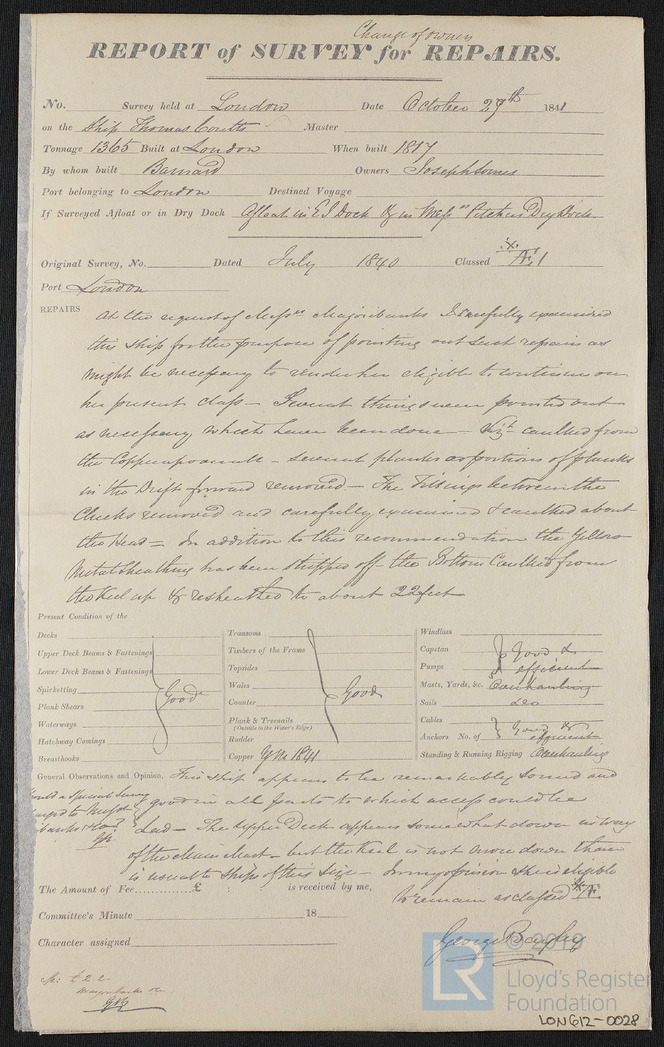 Change of owner
REPORT of SURVEY for REPAIRS.
No. Survey held at London Date October 27th 1841
on the Ship Thomas Coutts Master
Tonnage 1365 Built at London When built 1817
By whom built Barnard Owners Joseph Somes
Port belonging to London Destined Voyage
If Surveyed Afloat or in Dry Dock Afloat in E I Dock & in Messrs Pitchers Dry Dock
Original Survey, No. Dated July 1840 Classed Æ 1
Port London
REPAIRS At the request of Messrs Majoribanks I carefully examined
this Ship for the purpose of pointing out such repairs as
might be necessary to render her eligible to continue in
her present class - Several things were pointed out
as necessary which have been done - Viz caulked from
the Copper upwards - several planks or portions of planks
in the Drift forward removed - The Fillings between the
Cheeks removed and carefully examined & caulked about
the Head - In addition to this recommendation the Yellow
Metal Sheathing has been stripped off the Bottom Caulked from
the keel up & resheathed to about 22 feet
Present Condition of the
Decks
Upper Deck Beams & Fastenings
Lower Deck Beams & Fastenings
Spirketting Good
Plank Shears
Waterways
Hatchway Comings
Breasthooks
Transoms
Timbers of the Frame
Topsides
Wales
Counter Good
Plank & Treenails
(Outside to the Water's Edge)
Rudder
Copper Y M 1841
Windlass
Capstan Good &
Pumps efficient
Masts, Yards, &c. Overhauling
Sails do
Cables Good &
Anchors No. of efficient
Standing & Running Rigging Overhauling
General Observations and Opinion, This ship appears to be remarkably sound and
good in all parts to which access could be
had - The upper Deck appears somewhat down in way
of the Main Mast - but the keel is not more down than
is usual to Ships of this size - In my opinion she is eligible
to remain as classed Æ
The Amount of Fee............£ : is received by me,
Committee's Minute 18
Character assigned
George Bayley
£ 2 2 -
Majoribanks &co
GB
© 2019
LR
Lloyd's Register
Foundation
LON612-0028